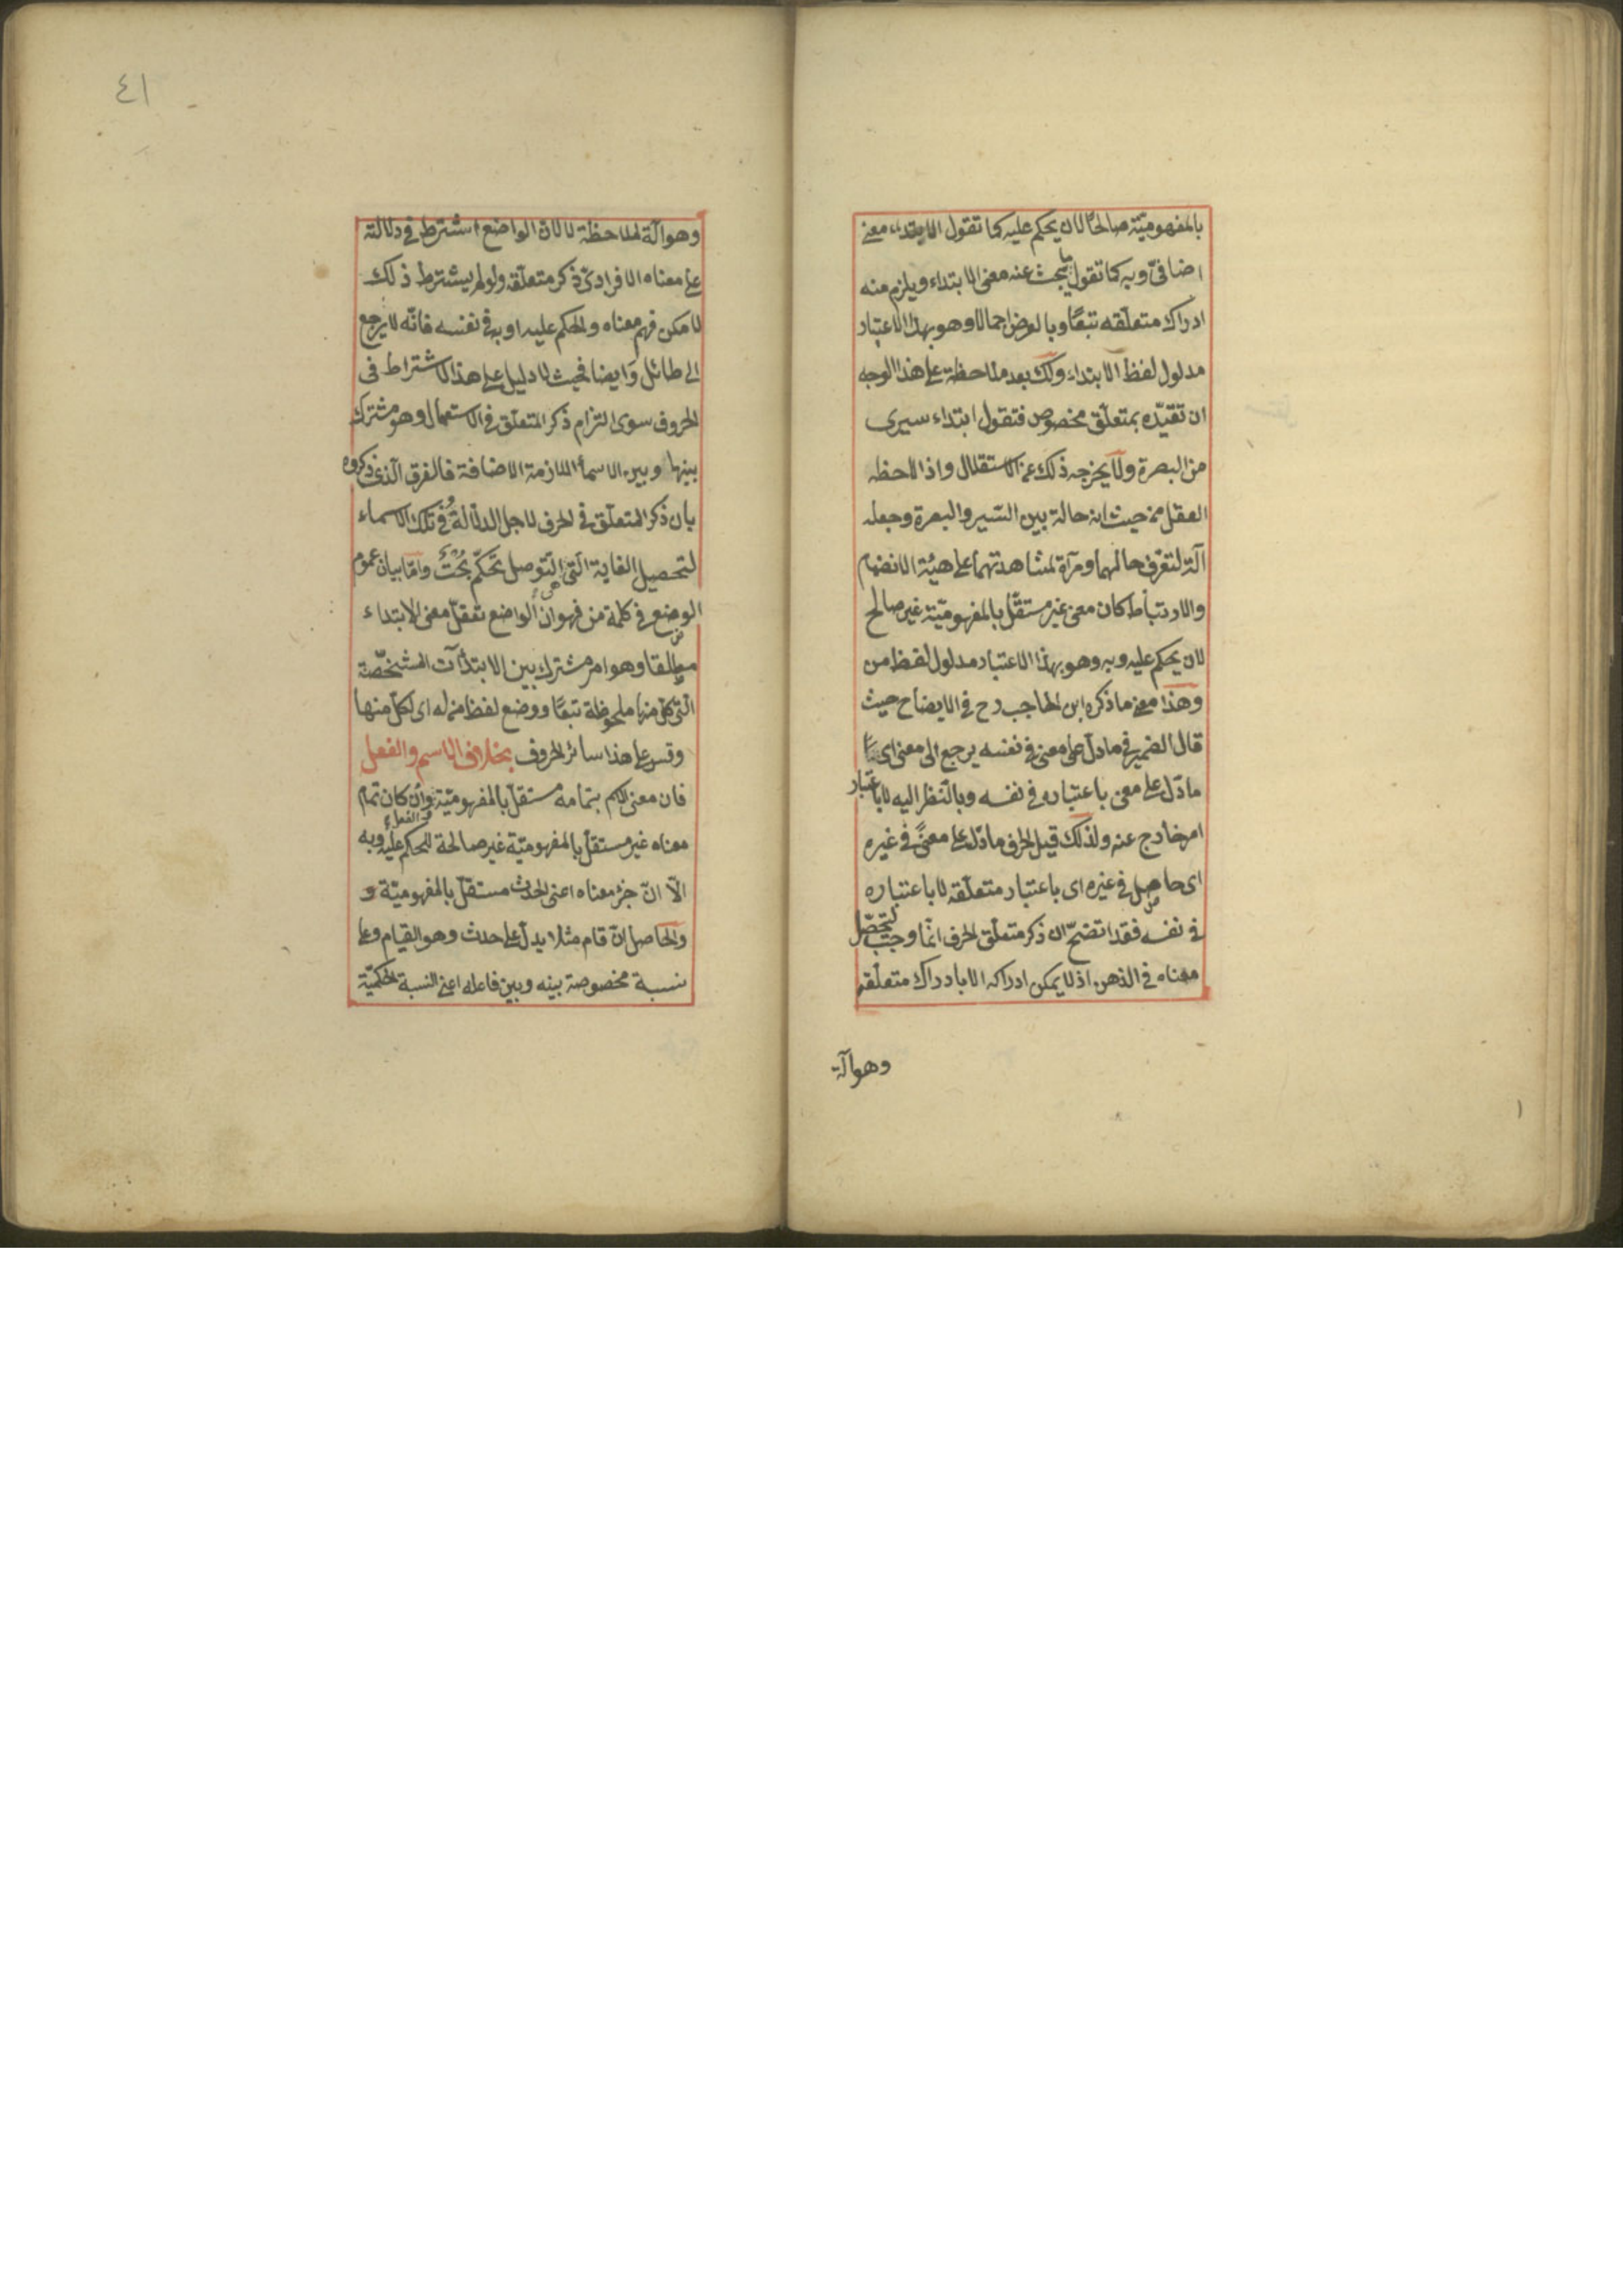 بالمفهوميّة صالحًا لان يحكم عليه كما تقول الابتداء معنى
اضافىّ وبه كما تقول ما يبحث عنه معنى الابتداء ويلزم منه
ادراك متعلّقه تبعًا وبالعرض اجمالا وهو بهذا الاعتبار
مدلول لفظ الابتداء ولك بعد ملاحظة على هذا الوجه
ان تقيّده بمتعلّق مخصوص فتقول ابتداء سيرى
من البصرة ولا يخرجه ذلك عن الاستقلال واذا لاحظه
العقل من حيث انه حالة بين السّير والبصرة وجعله
آلة لتعرّف حالهما ومرآة لمشاهدتهما على هيئة الانضمام
والارتباط كان معنى غير مستقلّ بالمفهوميّة غير صالح
لان يحكم عليه وبه وهو بهذا الاعتبار مدلول لفظ من
وهذا معنى ما ذكره ابن الحاجب رح فى الايضاح حيث
قال الضمير فى ما دلّ على معنى فى نفسه يرجع الى معنى اى
ما دلّ على معنى باعتباره فى نفسه وبالنّظر اليه لا باعتبار
امر خارج عنه ولذلك قيل الحرف ما دلّ على معنىً فى غيره
اى حاصل فى غيره اى باعتبار متعلّقه لا باعتباره
فى نفسه فقد اتضحّ ان ذكر متعلّق الحرف انّما وجب ليتحصّل
معناه فى الذهن اذ لا يمكن ادراكه الا بادراك متعلّقه
وهو آلة
٤١
وهو آلة لملاحظة لا لان الواضع اشترط فى دلالته
على معناه الافرادىّ ذكر متعلّقه ولو لم يشترط ذلك
لامكن فهم معناه والحكم عليه او به فى نفسه فانّه لا يرجع
الى طائل وايضا فحيث لا دليل على هذا الاشتراط فى
الحروف سوى التزام ذكر المتعلّق فى الاستعمال وهو مشترك
بينها وبين الاسماء اللازمة الاضافة فالفرق الّذى ذكروه
بان ذكر المتعلّق فى الحرف لاجل الدلالة وفى تلك الاسماء
لتحصيل الغاية الّتى هى التّوصل تحكّم بحت وامّا بيان عموم
الوضع فى كلمة من فهو ان الواضع تعقلّ معنى الابتداء
مطلقا وهو امر مشترك بين الابتدآآت المشخّصة
الّتى كلّ منها ملحوظة تبعًا ووضع لفظ من له اى لكلّ منها
وقس على هذا سائر الحروف بخلاف الاسم والفعل
فان معنى الاسم بتمامه مستقلّ بالمفهوميّة وان كان تمام
معناه غير مستقلّ بالمفهوميّة غير صالحة للحكم عليه وبه
الّا انّ جزء معناه اعنى الحدث مستقلّ بالمفهوميّة و
والحاصل انّ قام مثلا يدلّ على حدث وهو القيام وعلى
نسبة مخصوصة بينه وبين فاعله اعنى النسبة الحكميّة